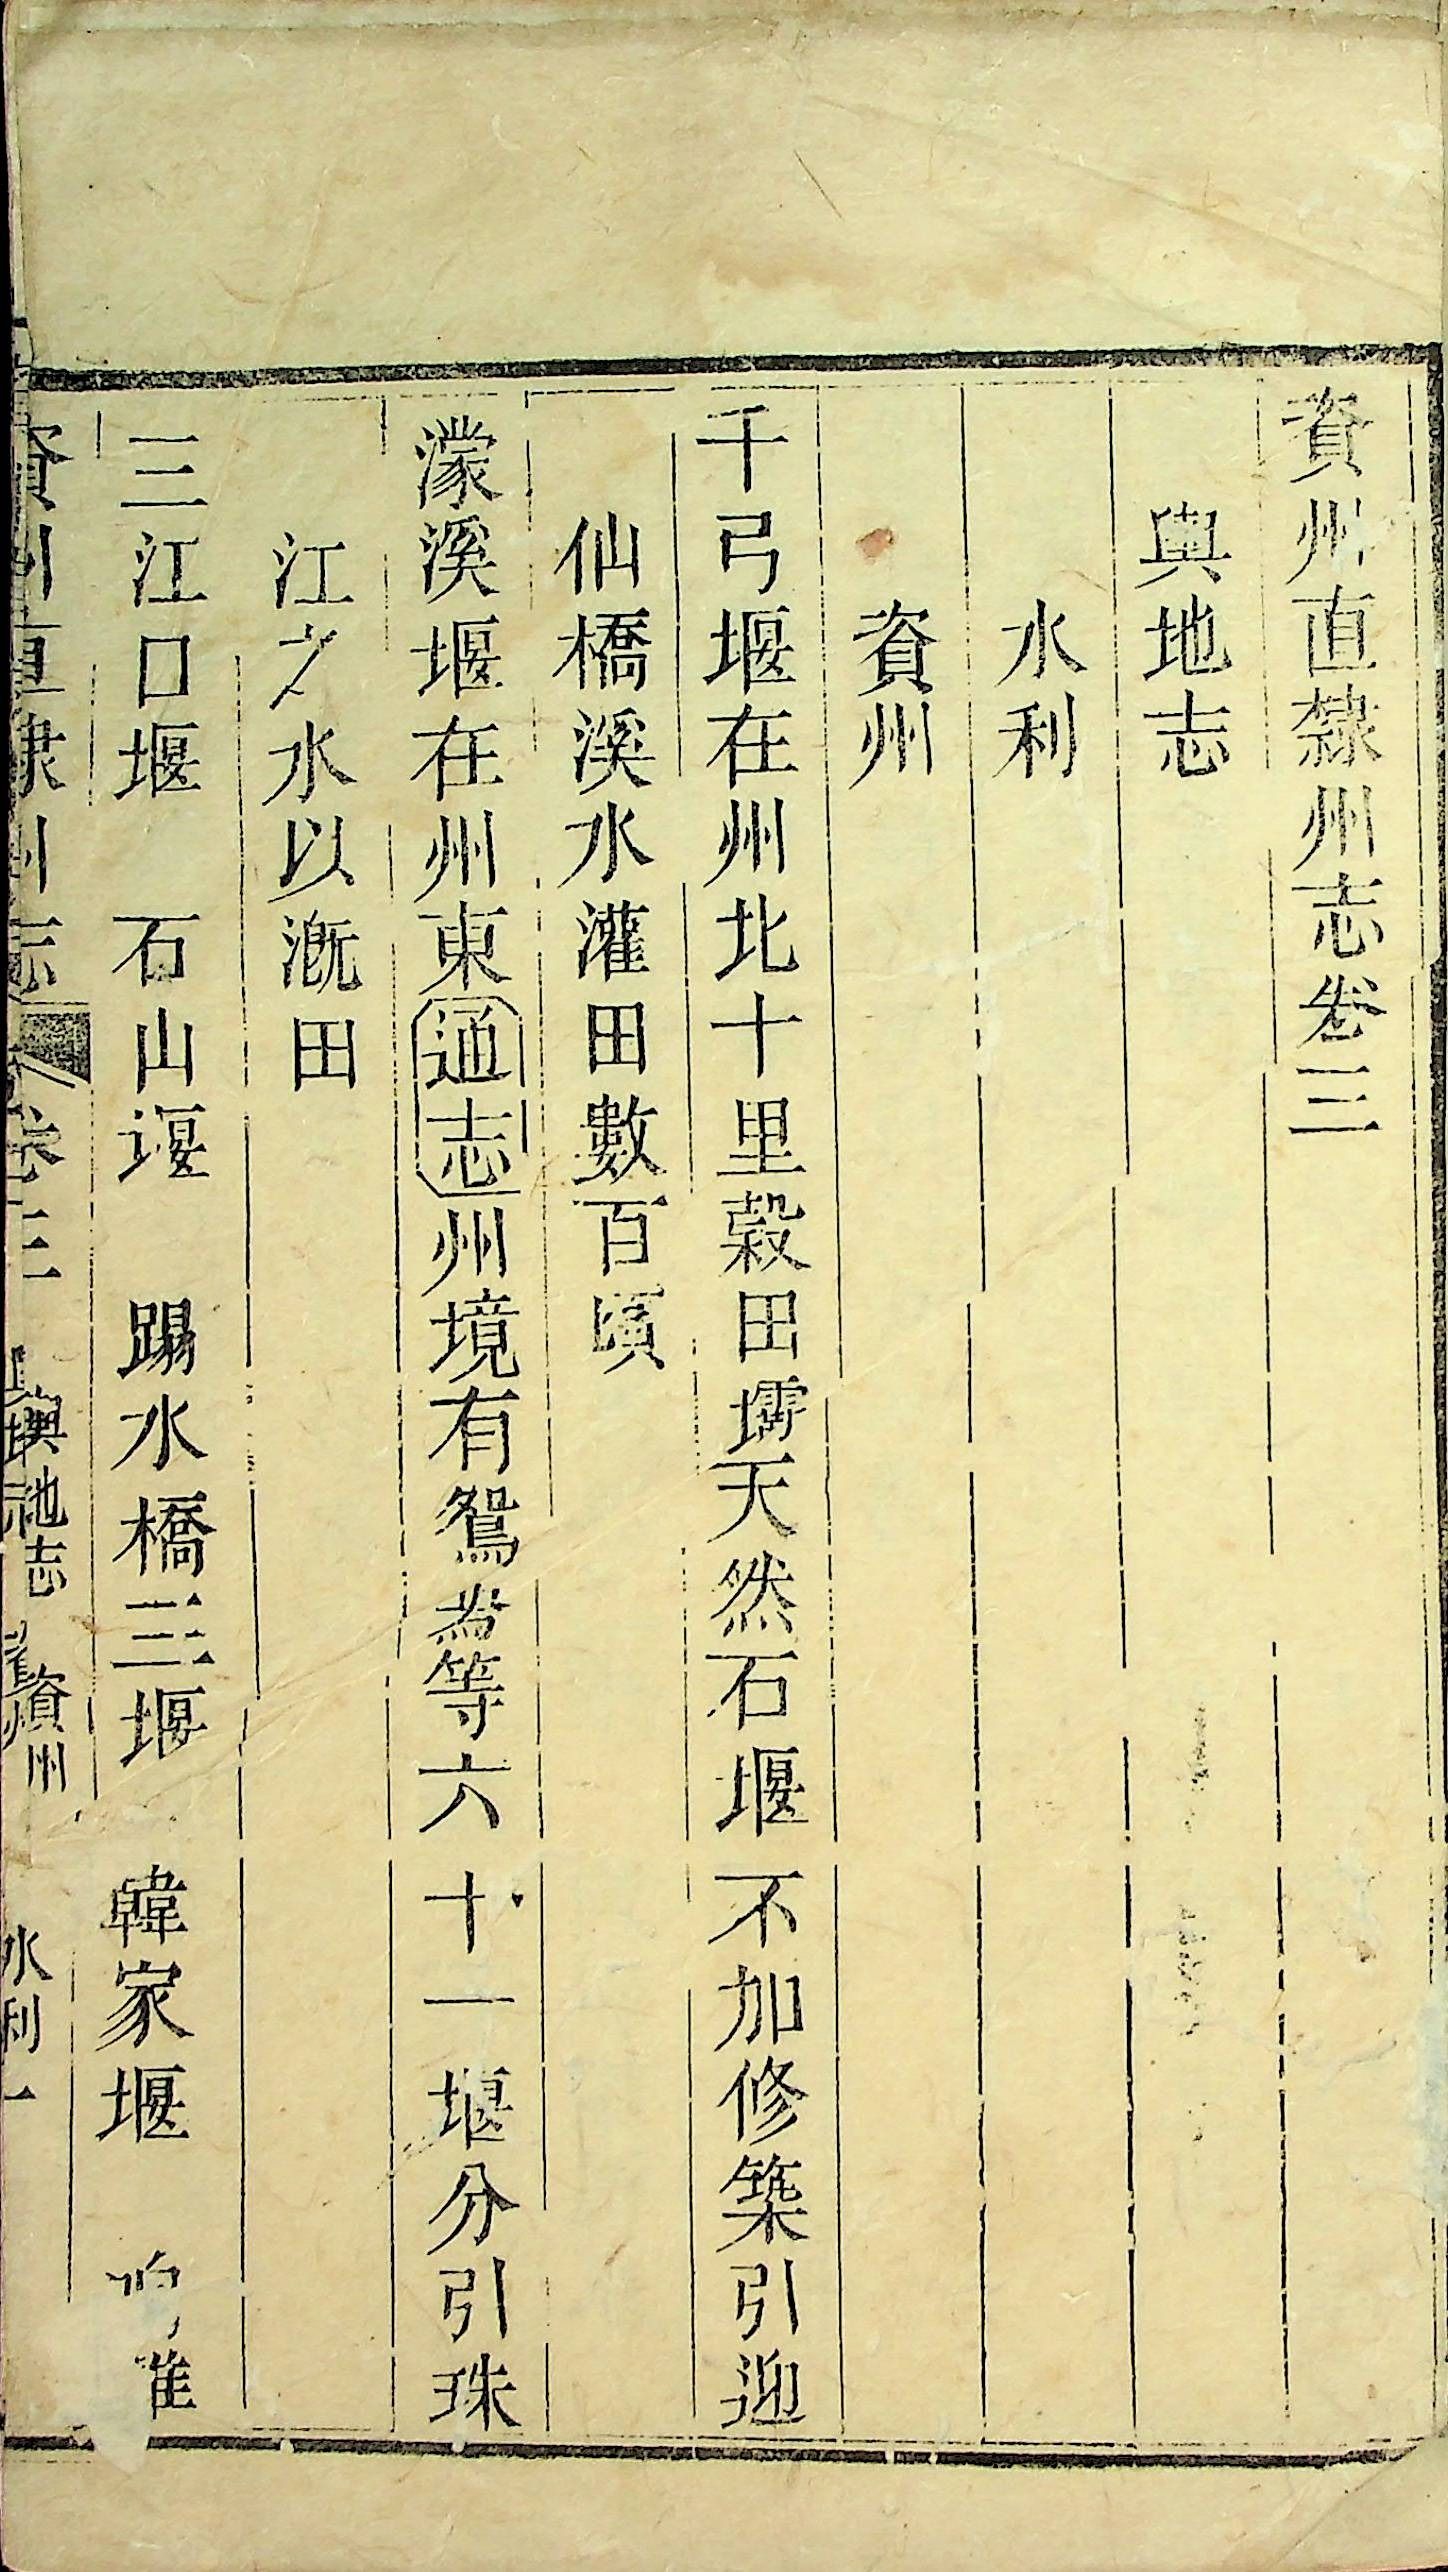 資州直隸州志卷三
輿地志
水利
資州
千弓堰在州北十里穀田壩天然石堰不加修築引迎
仙橋溪水灌田數百頃
濛溪堰在州東通志州境有鴛鴦等六十一堰分引珠
江之水以漑田
三江口堰　石山堰　踢水橋三堰　韓家堰
資州直隸州志　卷三　輿地志　資州　水利　一